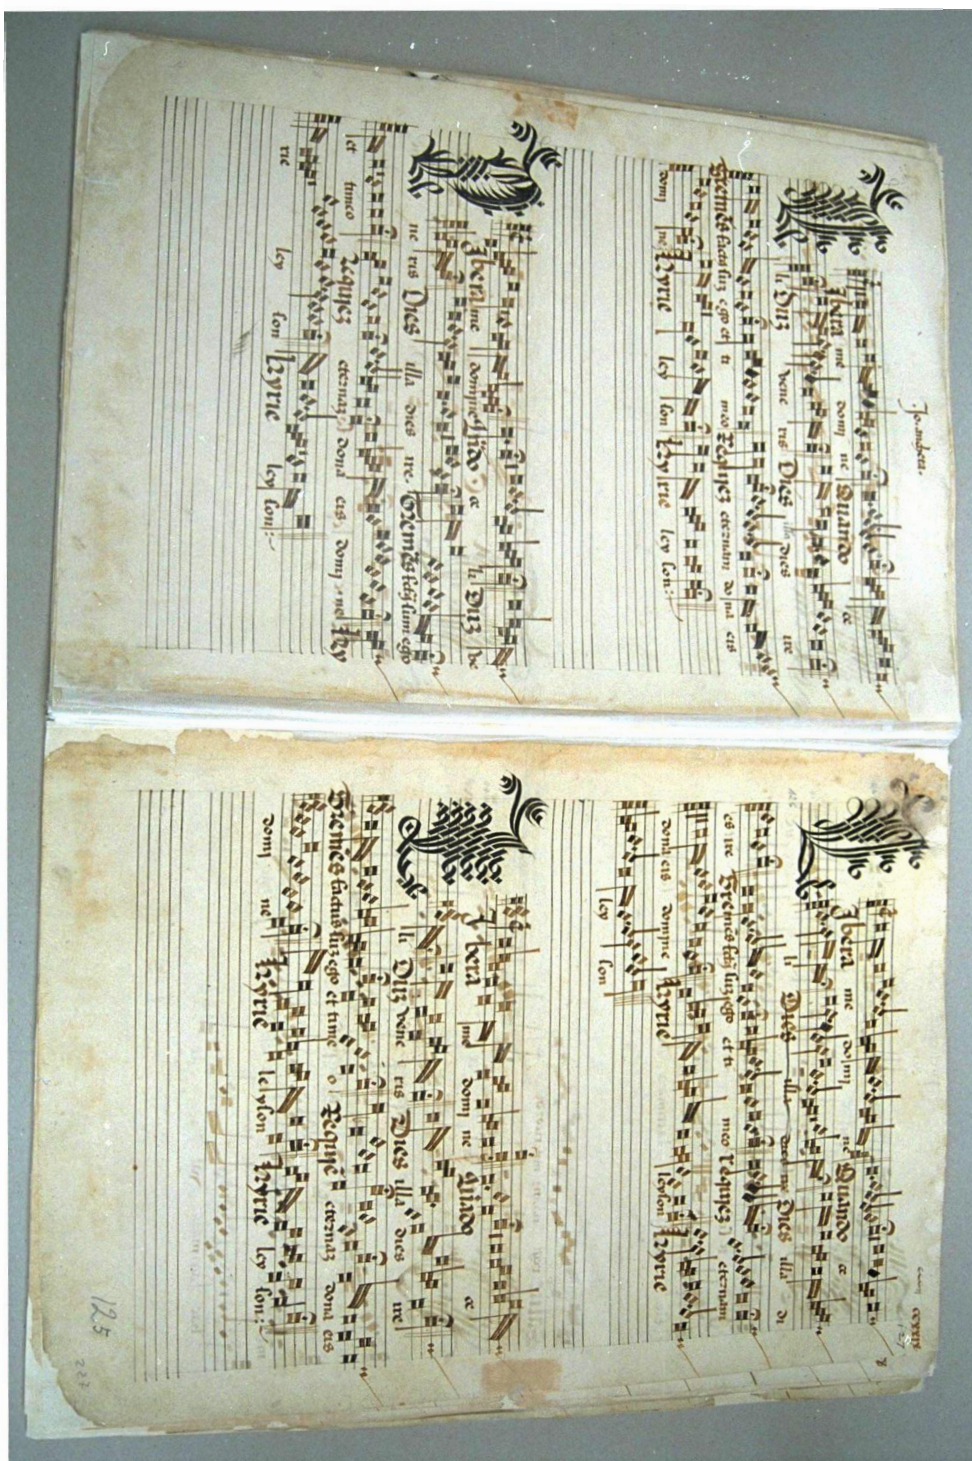 Jo. ancheta.
Ibera me domj ne Quando ce
li Duz vene ris Dies illa dies ire
Tremēs factus suz ego et ti meo Requiez eternam do na eis
domj ne: Kyrie ley son Kyrie ley son:
Ibera me domine Quādo ce li Duz ve
ne ris Dies illa dies ire. Tremēs factꝰ sum ego
et timeo Requiez eternaz dona eis domj ne Ky
rie ley son Kyrie ley son:
ccxxix
Ibera me domj ne Quando ce
li Dies illa Dies illa di
es ire Tremēs factꝰ suz ego et ti meo requiez eternam
dona eis domine Kyrie leyson Kyrie
ley son
Ibera me domj ne Quādo ce
li Duz vene ris Dies illa dies ire
Tremēs factus suz ego et time o Requiē eternaz dona eis
domj ne Kyrie leyson Kyrie ley son:
125
227